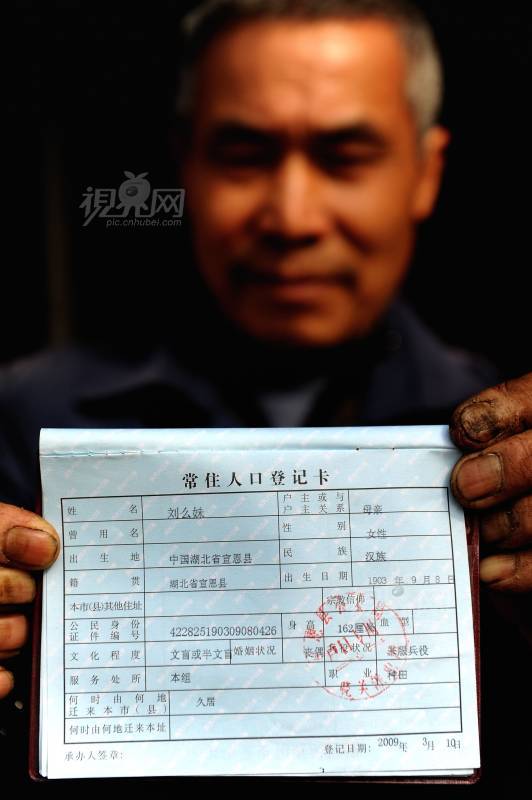 視界网
pic.cnhubei.com
常住人口登记卡
姓名 刘么妹 户主或与户主关系 母亲
曾用名 性别 女性
出生地 中国湖北省宣恩县 民族 汉族
籍贯 湖北省宣恩县 出生日期 1903年9月8日
本市(县)其他住址 宗教信仰
公民身份证件编号 422825190309080426 身高 162厘 血型
文化程度 文盲或半文盲 婚姻状况 丧偶 兵役状况 服兵役
服务处所 本组 职业 种田
何时由何地迁来本市(县) 久居
何时由何地迁来本址
承办人签章: 登记日期: 2009年3月10日